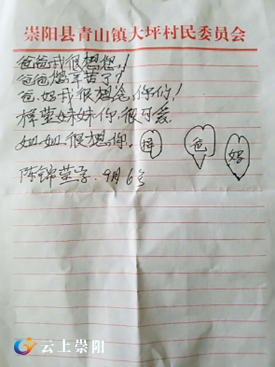 崇阳县青山镇大坪村民委员会
爸爸我很想您!
爸爸妈辛苦了?
爸.妈我很想念,你们!
梓萱妹妹你,很可爱
姐姐.很想你.
梓
爸
妈
陈锦萱写.9月6号
云上崇阳